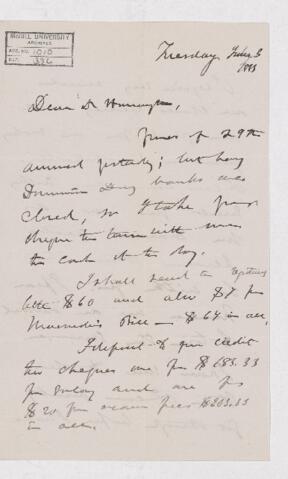 McGILL UNIVERSITY
ARCHIVES
ACC. NO. 1010
REF.
Tuesday July 3
1883
Dear Dr Harrington,
Yours of 29th
arrived yesterday; but being
Dominion Day banks were
closed, so I take your
cheque to town with me
to cash it to day.
I shall send a
$60 and also $4 for
Bill — $64 in all.
I deposit to your credit
two cheques one for $683.33
for salary and one for
$20 for exam fees $703.33
in all.